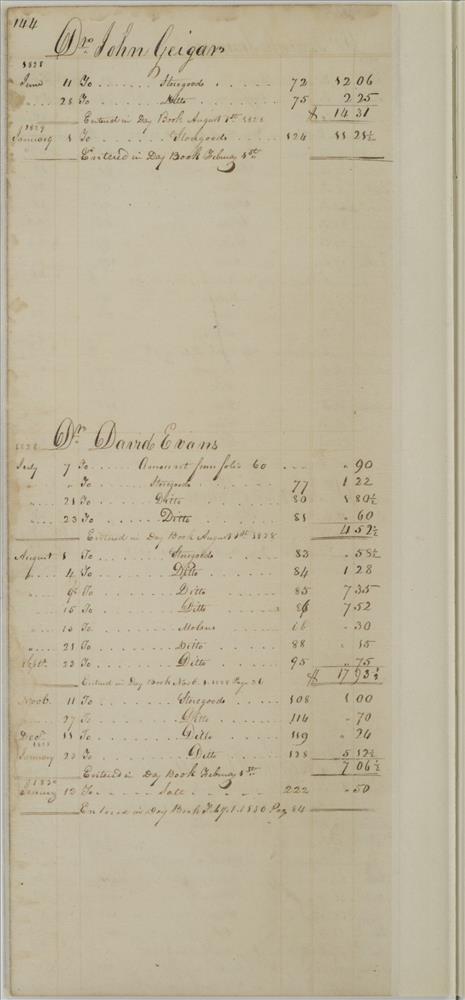 144
Dr. John Geigar
1828
June 11 To . . . . . . . Storegoods . . . . . 72 12 06
" . . . 28 To . . . . . . . Ditto . . . . . . . 75 2 25
Entered in Day Book August 1st 1828 $ 14 31
1829
January 1 To . . . . . . . Storegoods . . . . 124 11 21½
Entered in Day Book Febuary 1st
1828 Dr. David Evans
July 7 To . . . . . Amount from folio 60 . . . . " 90
" . . " To . . . . . . Storegoods . . . . 77 1 22
" . . 21 To . . . . . . Ditto . . . . . . 80 1 80½
" . . 23 To . . . . . . Ditto . . . . . . 81 " 60
Entered in Day Book August 1st 1828 4 52½
August 1 To . . . . . . Storegoods . . . . 83 " 58½
" . . 4 To . . . . . . Ditto . . . . . . 84 1 28
" . . 9 To . . . . . . Ditto . . . . . . 85 7 35
" . . 15 To . . . . . . Ditto . . . . . . 86 7 52
" . . To . . . . . . . . . . . . " 30
" . . 21 To . . . . . . Ditto . . . . . . 88 " 15
Sept. 23 To . . . . . . Ditto . . . . . . 95 " 75
Entered in Day Book Novb. 1. 1828 Page 26 $ 17 93½
Novb. 11 To . . . . . . Storegoods . . . . 108 1 00
27 To . . . . . . Ditto . . . . . . 114 " 70
Decb. 11 To . . . . . . Ditto . . . . . . 119 " 24
1829
January 23 To . . . . . . Ditto . . . . . . 128 5 12½
Entered in Day Book Febuary 1st 7 06½
1830
January 12 To . . . . . . Salt . . . . . . 222 " 50
Entered in Day Book Feby. 1. 1830 Pag 84